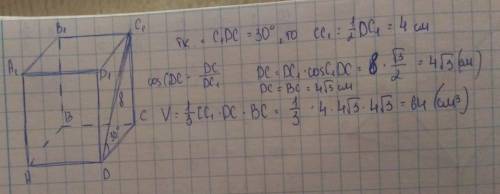 B₁ C₁
A₁ D₁
B C
A D
8
30°
т.к ∠C₁DC = 30°, то CC₁ = 1/2 DC₁ = 4 см
cos CDC = DC/DC₁ DC = DC₁ · cos C₁DC = 8 · √3/2 = 4√3 (см)
DC = BC = 4√3 см
V = 1/3 CC₁ · DC · BC = 1/3 · 4 · 4√3 · 4√3 = 64 (см³)